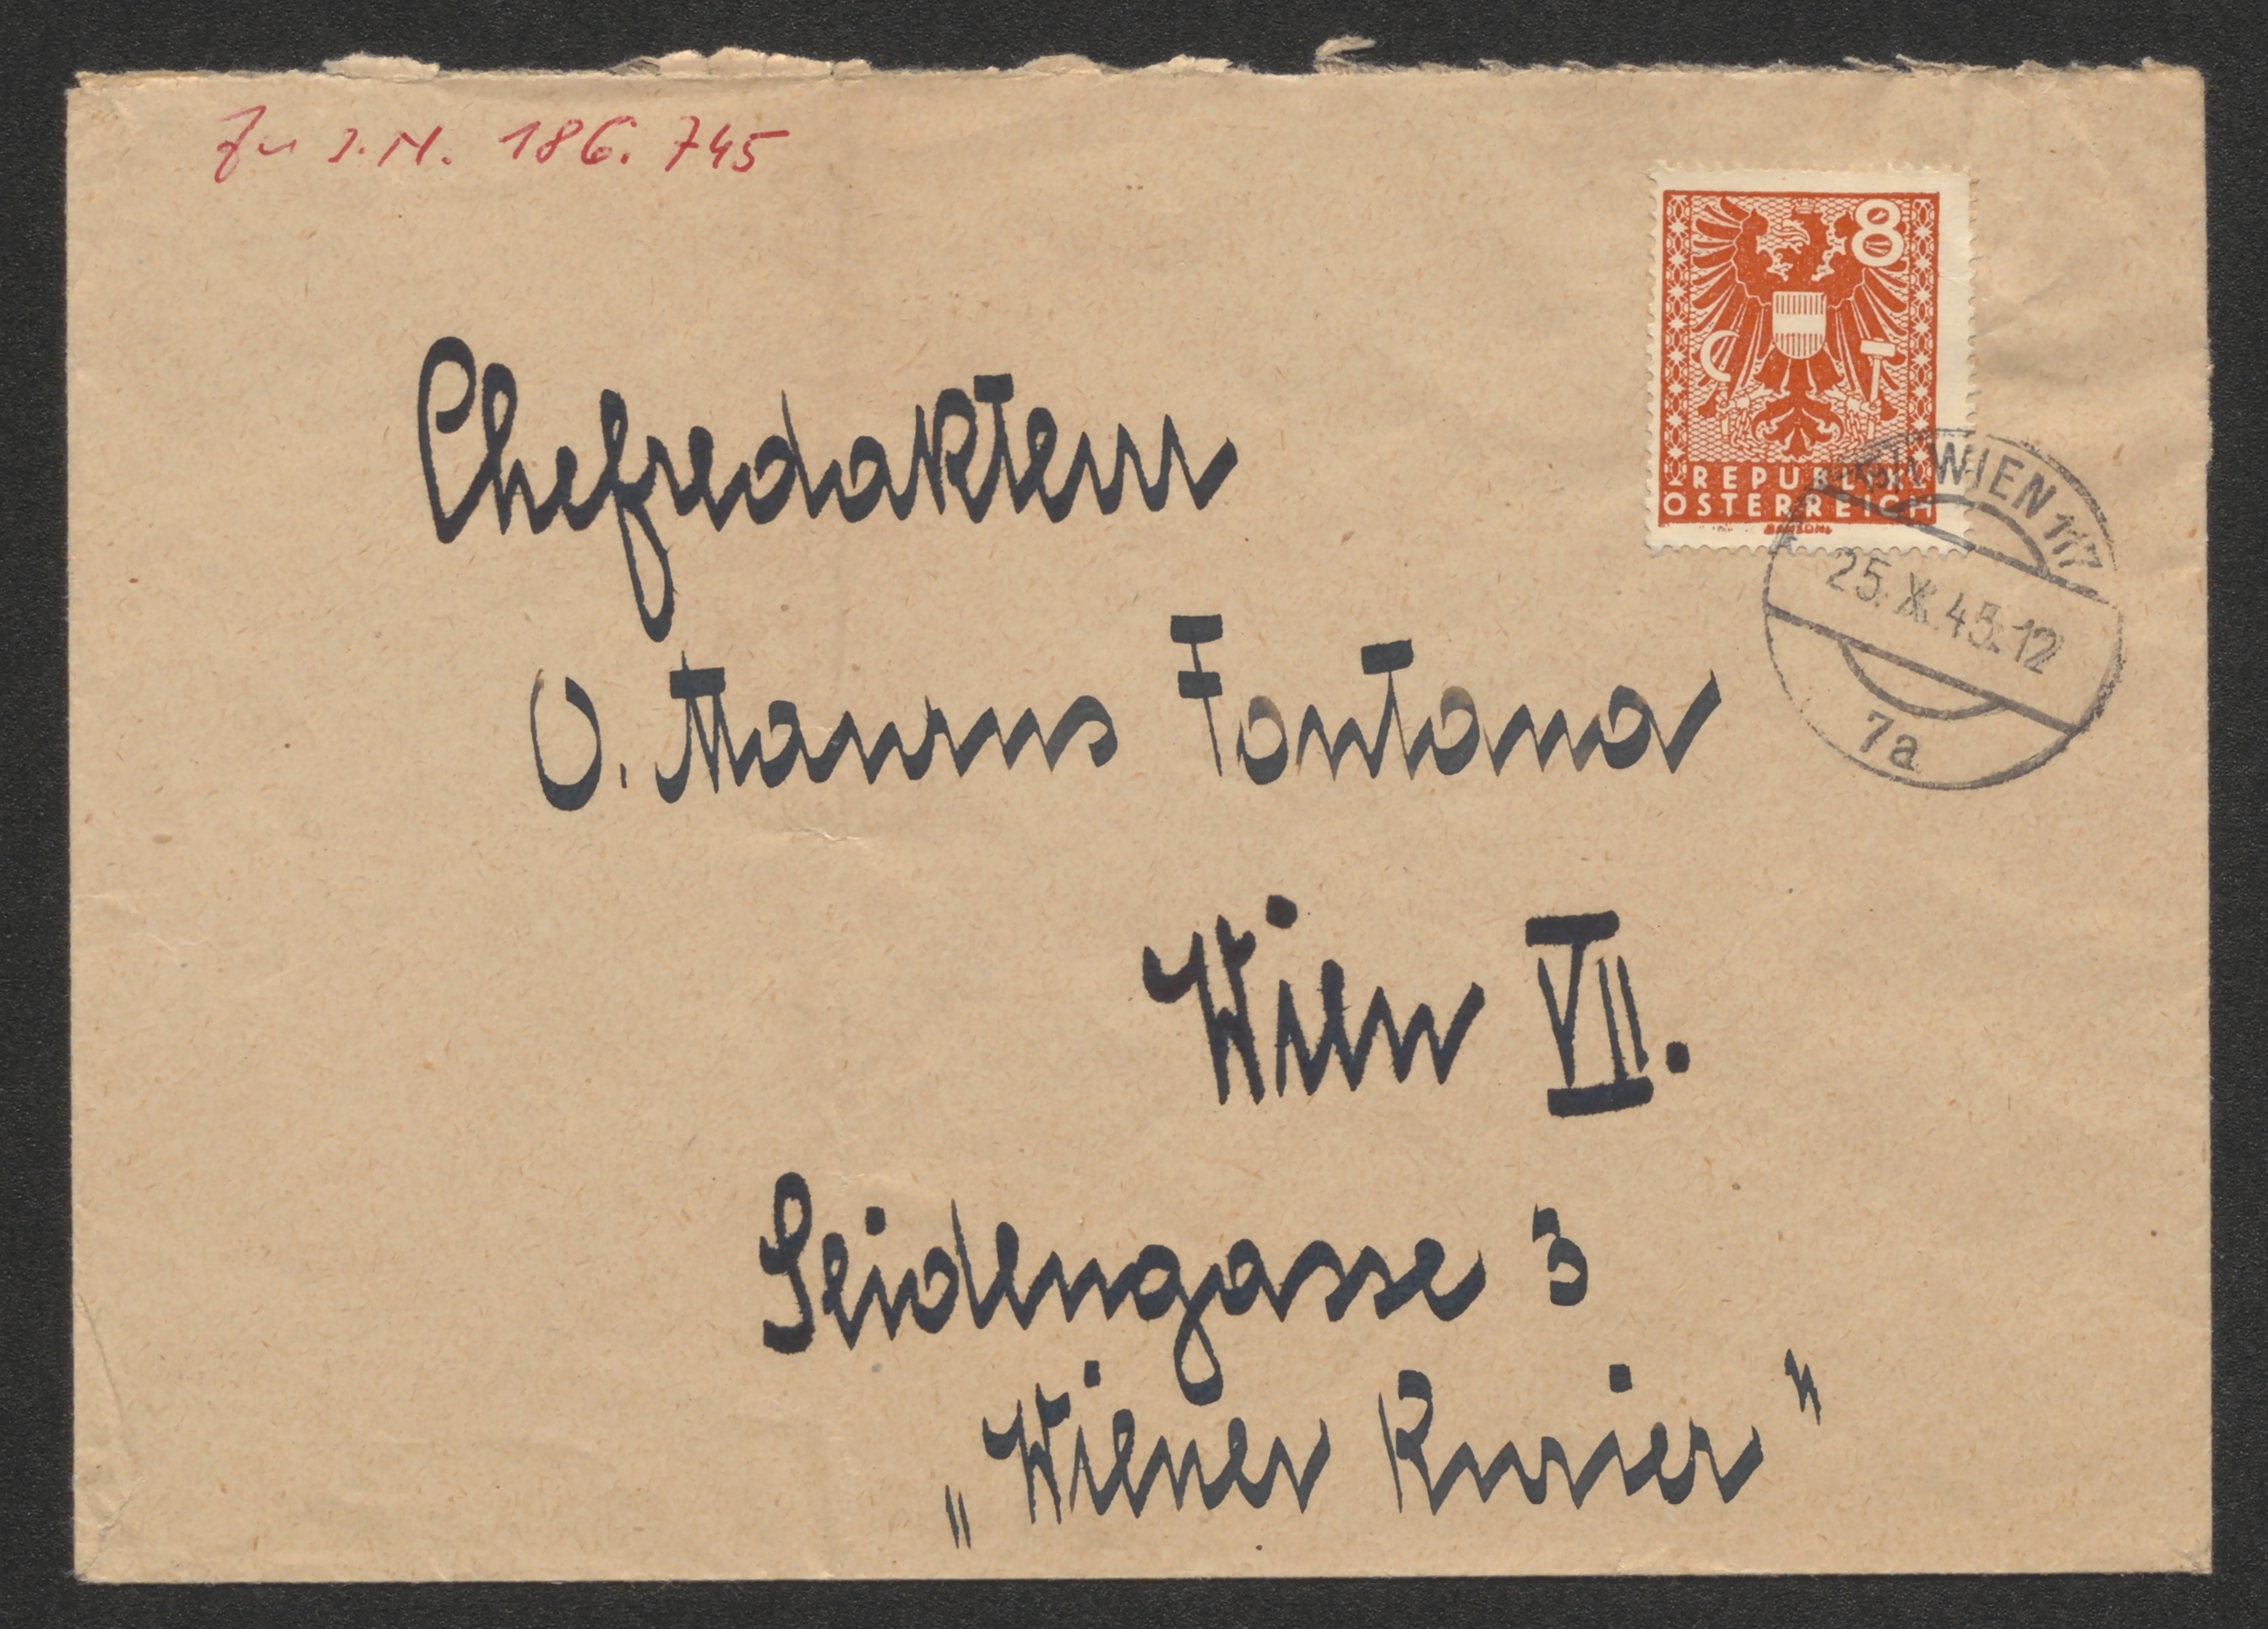 Zu I.N. 186.745
8
REPUBLIK
ÖSTERREICH
WIEN 117
25.X.45.12
7a
Chefredakteur
O. Maurus Fontana
Wien VII.
Seidengasse 3
„Wiener Kurier"